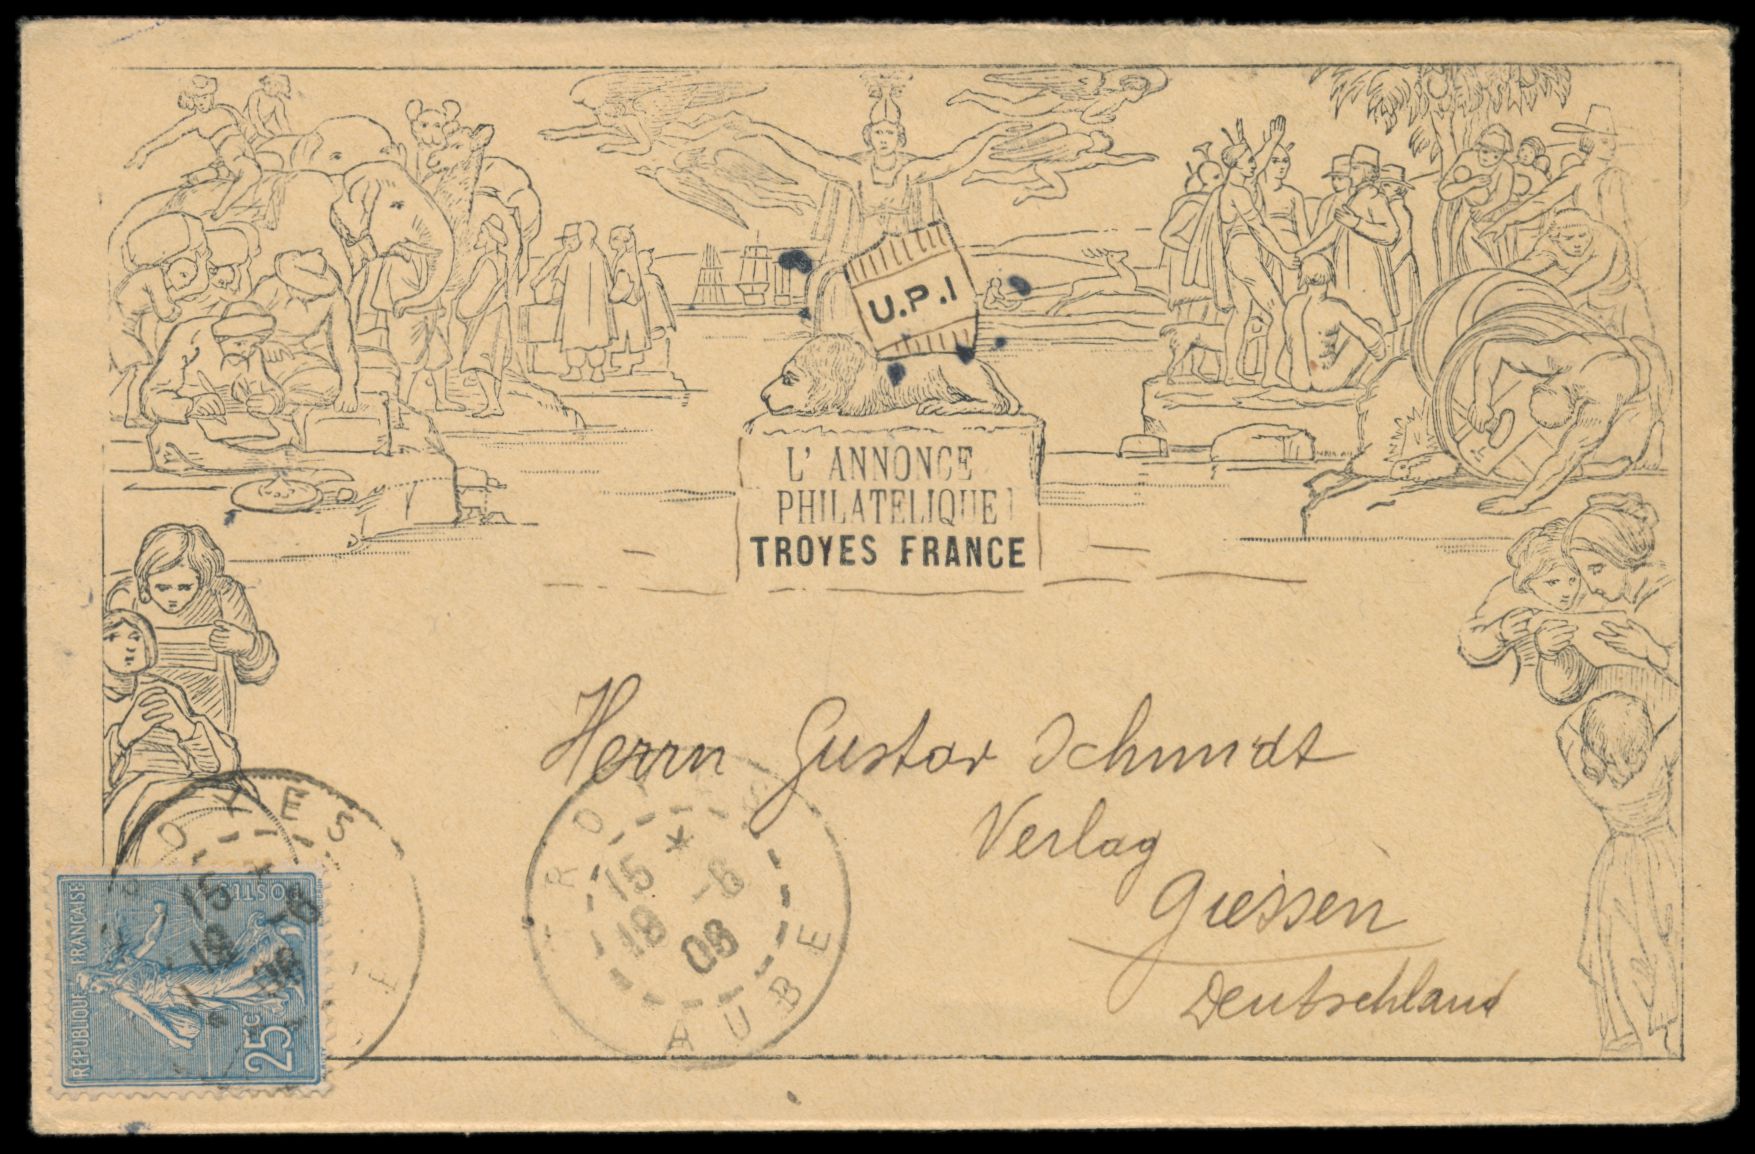 U.P.I
L' ANNONCE
PHILATELIQUE
TROYES FRANCE
Herrn Gustav Schmidt
Verlag
Giessen
Deutschland
TROYES
15 *
18 -6
08
AUBE
TROYES
15 *
18 -6
08
REPUBLIQUE FRANÇAISE
POSTES
25c